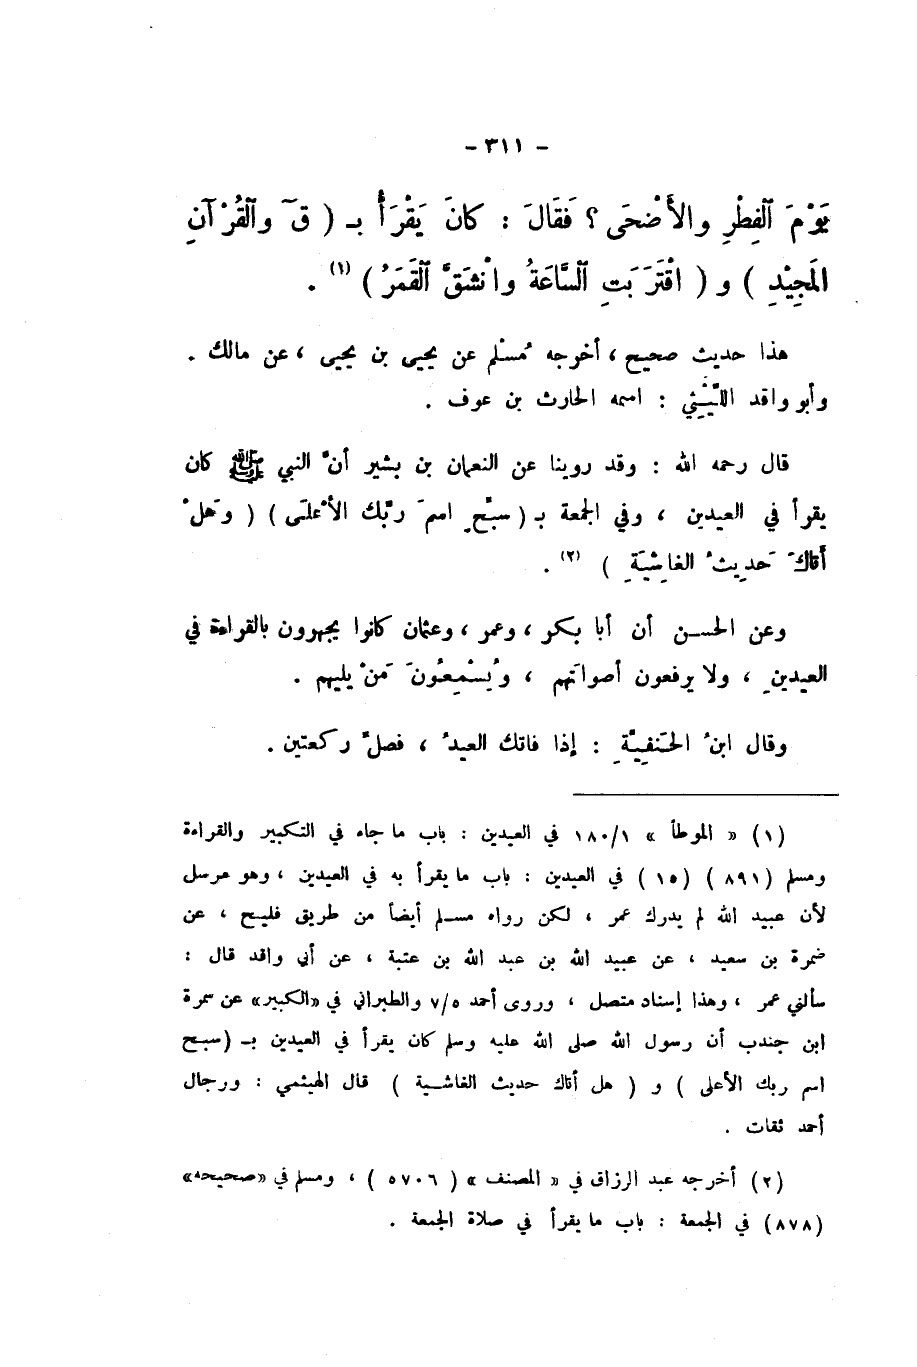 - ٣١١ -
يَوْمَ ٱلفِطْرِ والأَضْحَى ؟ فَقَالَ : كانَ يَقْرَأُ بـ ( قَ والقُرْآنِ
المَجِيْدِ ) و ( اقْتَرَبَتِ ٱلسَّاعَةُ وانْشَقَّ ٱلقَمَرُ ) (١) .
هذا حديث صحيح ، أخرجه مُسْلم عن يحيى بن يحيى ، عن مالك .
وأبو واقد اللَّيْثِي : اسمه الحارث بن عوف .
قال رحمه الله : وقد روينا عن النعمان بن بشير أنَّ النبي ﷺ كان
يقرأ في العيدين ، وفي الجمعة بـ ( سبِّحِ اسمَ ربِّك الأعْلَى ) ( وَهلْ
أتاكَ حَديثُ الغاشِيَةِ ) (٢) .
وعن الحسن أن أبا بكر ، وعمر ، وعثمان كانوا يجهرون بالقراءة في
العيدينِ ، ولا يرفعون أصواتهم ، ويُسْمِعُونَ مَنْ يليهم .
وقال ابنُ الحَنفيَّةِ : إذا فاتك العيدُ ، فصلِّ ركعتين .
(١) « الموطأ » ١٨٠/١ في العيدين : باب ما جاء في التكبير والقراءة
ومسلم (٨٩١) (١٥) في العيدين : باب ما يقرأ به في العيدين ، وهو مرسل
لأن عبيد الله لم يدرك عمر ، لكن رواه مسلم أيضاً من طريق فليح ، عن
ضمرة بن سعيد ، عن عبيد الله بن عبد الله بن عتبة ، عن أبي واقد قال :
سألني عمر ، وهذا إسناد متصل ، وروى أحمد ٧/٥ والطبراني في «الكبير» عن سمرة
ابن جندب أن رسول الله صلى الله عليه وسلم كان يقرأ في العيدين بـ (سبح
اسم ربك الأعلى ) و ( هل أتاك حديث الغاشية ) قال الهيثمي : ورجال
أحمد ثقات .
(٢) أخرجه عبد الرزاق في « المصنف » ( ٥٧٠٦ ) ، ومسلم في «صحيحه»
(٨٧٨) في الجمعة : باب ما يقرأ في صلاة الجمعة .